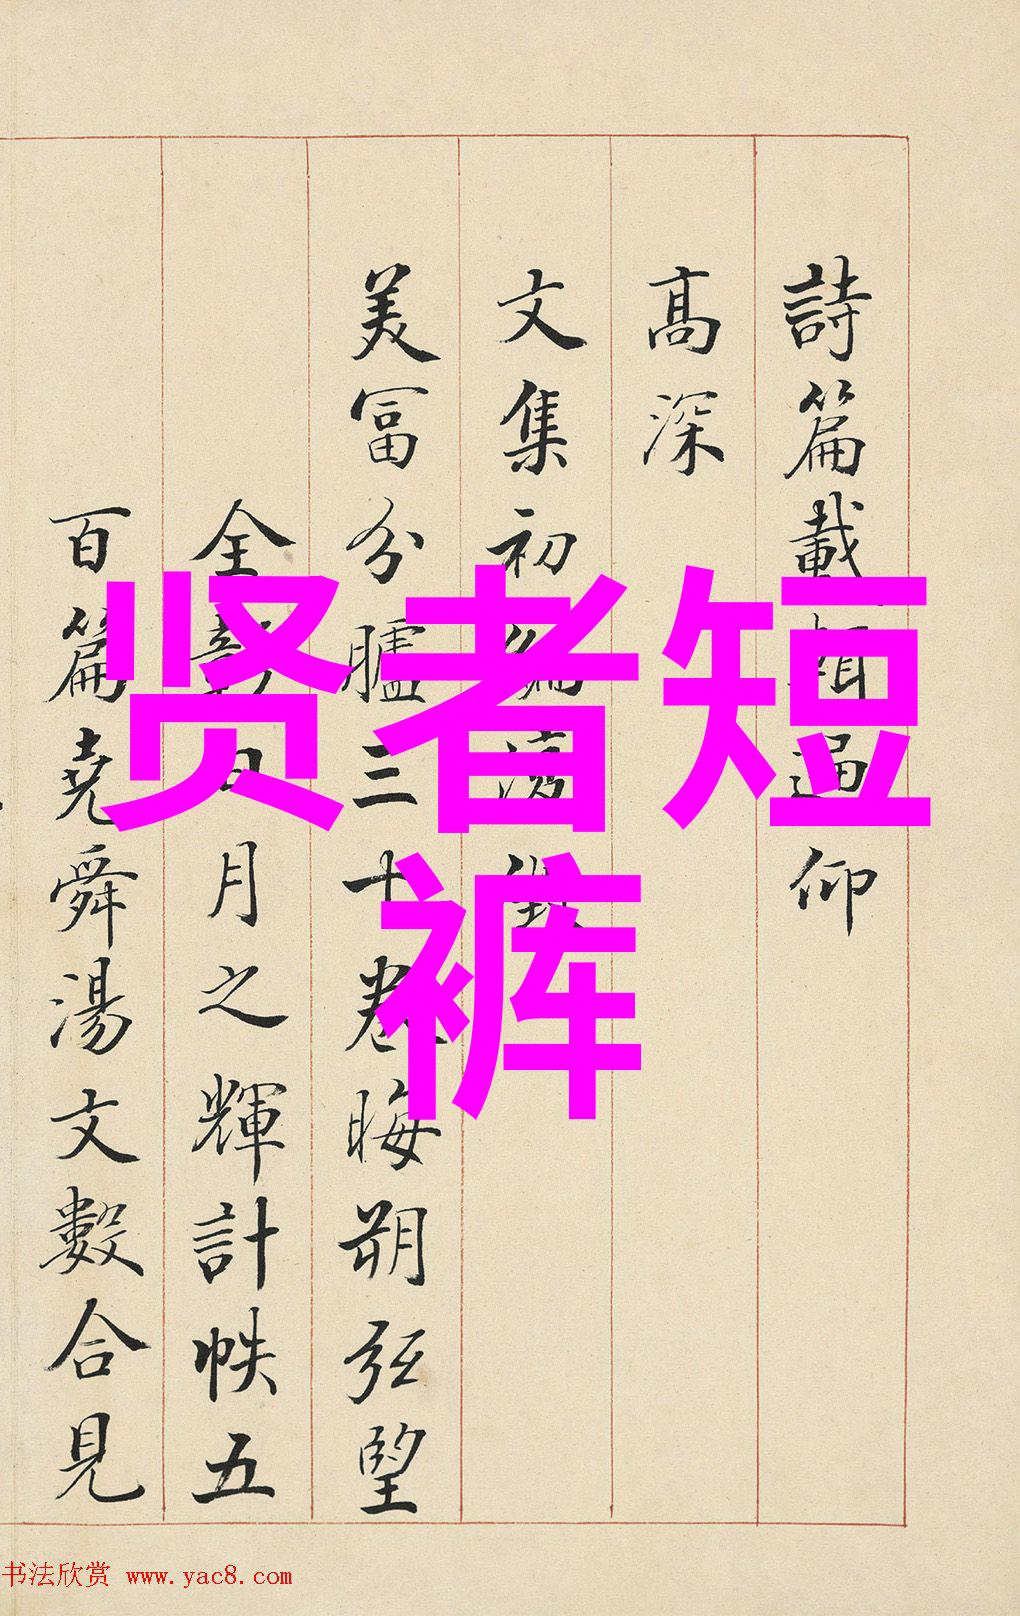 詩篇載賡逼仰
高深
文集初編
美富分臚三十卷晦朔弦望
全彰日月之輝計帙五
百篇堯舜湯文數合見
贤者短
裤
书法欣赏 www.yac8.com